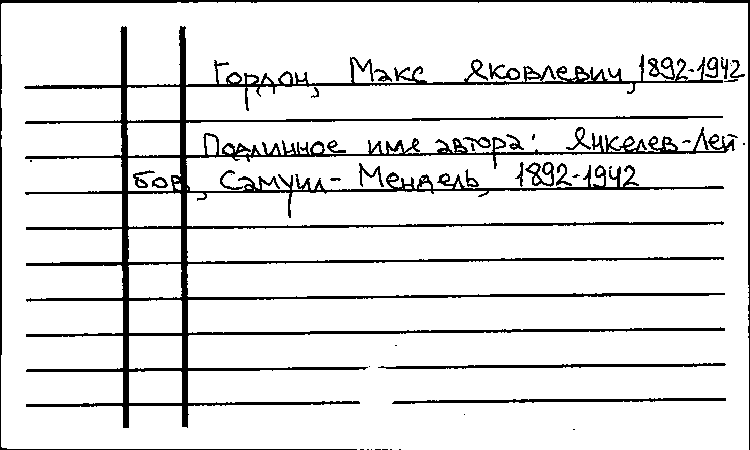 Гордон, Макс Яковлевич, 1892-1942
Подлинное име автора: Янкелев-Лей-
бов, Самуил-Мендель, 1892-1942